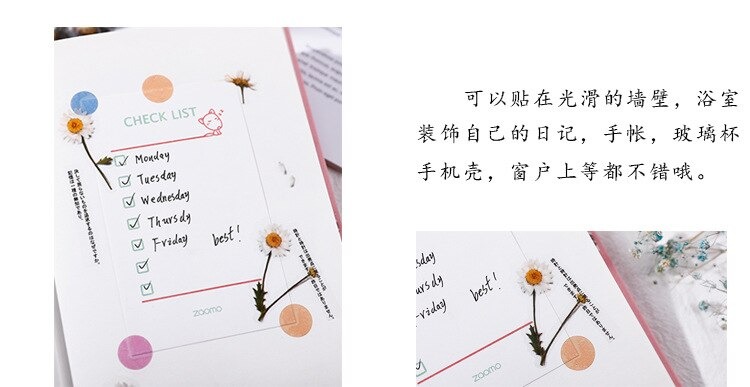 CHECK LIST
Monday
Tuesday
Wednesday
Thursdy
Friday
best!
zoomo
可以贴在光滑的墙壁，浴室
装饰自己的日记，手帐，玻璃杯
手机壳，窗户上等都不错哦。
sday
ursdy
riday
best!
zoomo